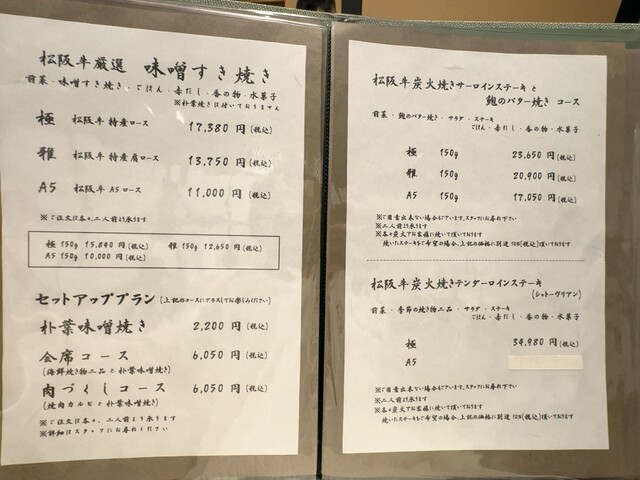 松阪牛厳選 味噌すき焼き
前菜・味噌すき焼き・ごはん・赤だし・香の物・水菓子
※朴葉焼きは付いておりません
極 松阪牛 特産ロース 17,380 円(税込)
雅 松阪牛 特産肩ロース 13,750 円(税込)
A5 松阪牛 A5ロース 11,000 円(税込)
※ご注文は各々、二人前より承ります
極 150g 15,840 円(税込) 雅 150g 12,650 円(税込)
A5 150g 10,000 円(税込)
セットアッププラン(上記のコースにプラスしてお楽しみください)
朴葉味噌焼き 2,200 円(税込)
会席コース 6,050 円(税込)
(海鮮焼き物二品と朴葉味噌焼き)
肉づくしコース 6,050 円(税込)
(焼肉カルビと朴葉味噌焼き)
※ご注文は各々、二人前より承ります
※詳細はスタッフにお尋ねください
松阪牛炭火焼きサーロインステーキと
鮑のバター焼き コース
前菜・鮑のバター焼き・サラダ・ステーキ
ごはん・赤だし・香の物・水菓子
極 150g 23,650 円(税込)
雅 150g 20,900 円(税込)
A5 150g 17,050 円(税込)
※ご用意出来ない場合もございます。スタッフにお尋ね下さい
※二人前より承ります
※各々炭火でお客様に焼いて頂いております
焼いたステーキをご希望の場合、上記の価格に別途10%(税込)頂いております
松阪牛炭火焼きテンダーロインステーキ
(シャトーヴリアン)
前菜・季節の焼き物二品・サラダ・ステーキ
ごはん・赤だし・香の物・水菓子
極 34,980 円(税込)
A5
※ご用意出来ない場合もございます。スタッフにお尋ね下さい
※二人前より承ります
※各々炭火でお客様に焼いて頂いております
焼いたステーキをご希望の場合、上記の価格に別途10%(税込)頂いております